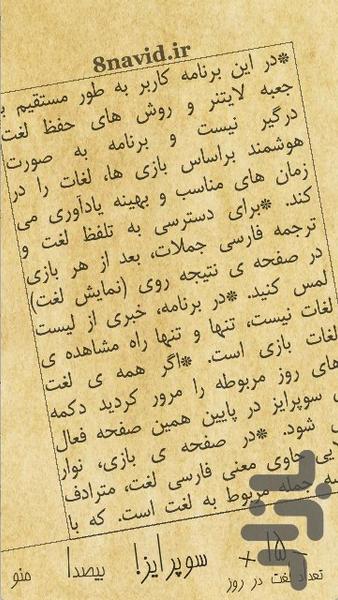 8navid.ir
*در این برنامه کاربر به طور مستقیم ب
جعبه لایتنر و روش های حفظ لغت
درگیر نیست و برنامه به صورت
هوشمند براساس بازی ها، لغات را در
زمان های مناسب و بهینه یادآوری می
کند. *برای دسترسی به تلفظ لغت و
ترجمه فارسی جملات، بعد از هر بازی
در صفحه ی نتیجه روی (نمایش لغت)
لمس کنید. *در برنامه، خبری از لیست
لغات نیست، تنها و تنها راه مشاهده ی
لغات بازی است. *اگر همه ی لغت
های روز مربوطه را مرور کردید دکمه
ی سوپرایز در پایین همین صفحه فعال
شود. *در صفحه ی بازی، نوار
حاوی معنی فارسی لغت، مترادف
جمله مربوط به لغت است. که با
+ ۱۵ -
تعداد لغت در روز
سوپرایز!
بیصدا
منو